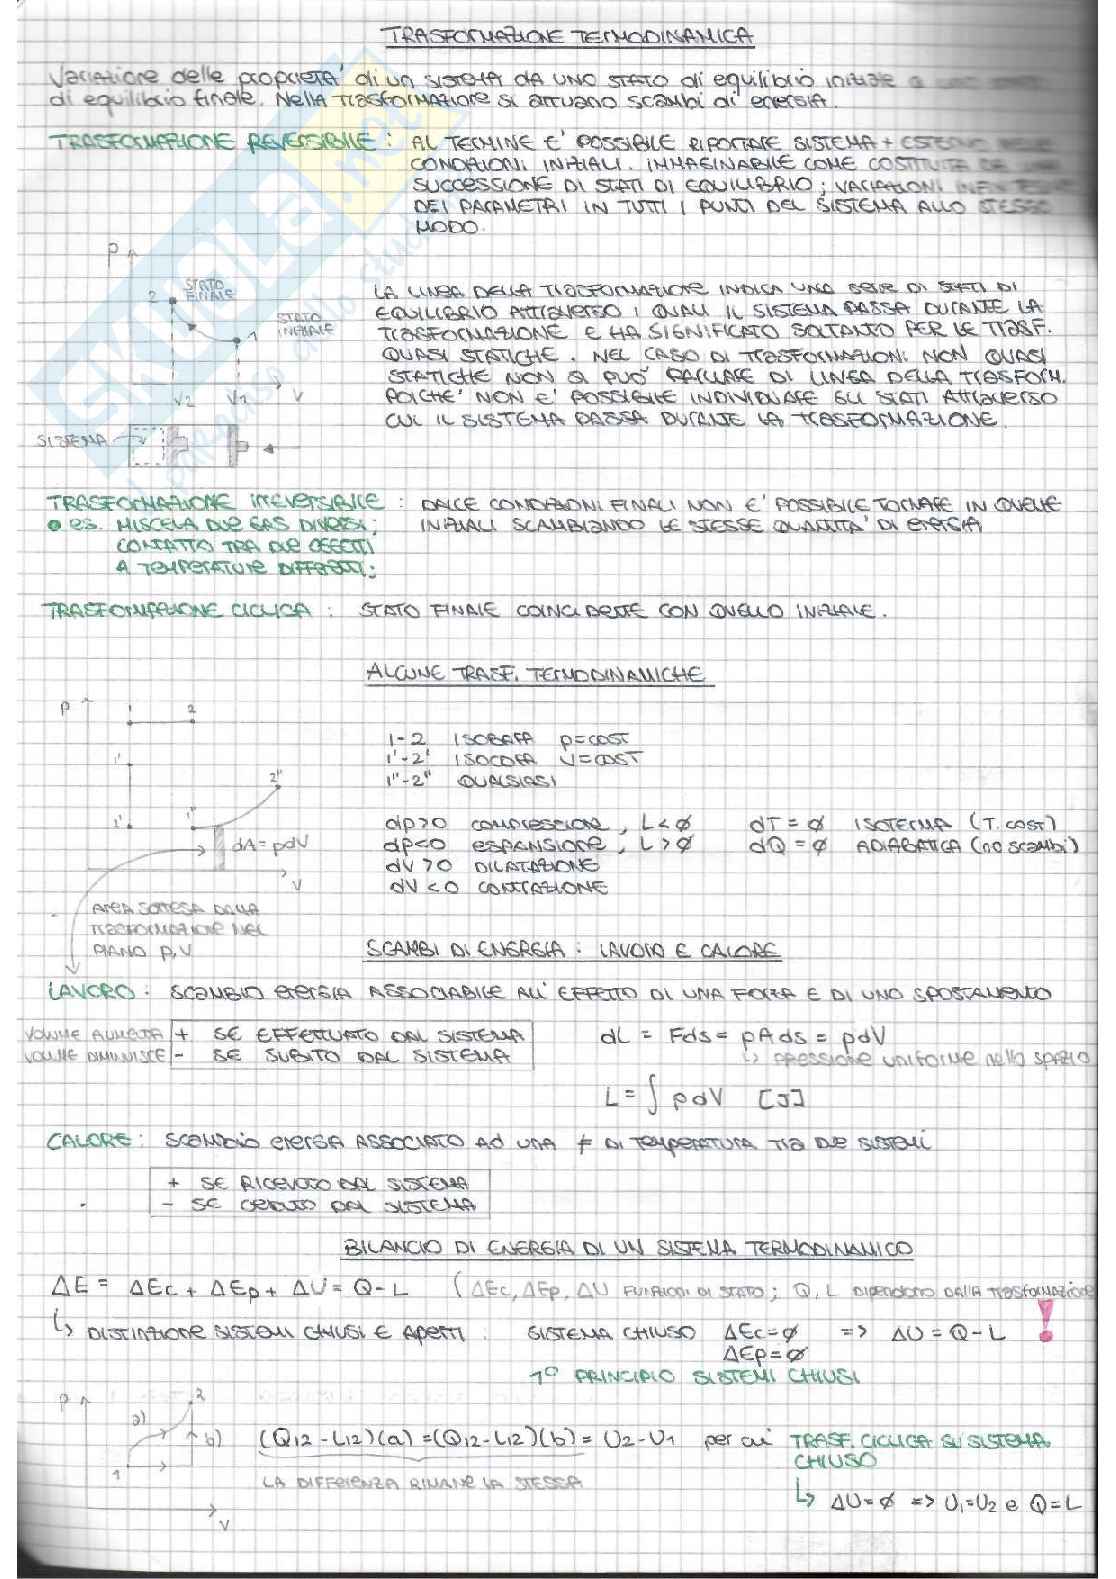 TRASFORMAZIONE TERMODINAMICA
Variazione delle proprietà di un sistema da uno stato di equilibrio iniziale a uno stato
di equilibrio finale. Nella trasformazione si attuano scambi di energia.
TRASFORMAZIONE REVERSIBILE : AL TERMINE E' POSSIBILE RIPORTARE SISTEMA + ESTERNO NELLE
CONDIZIONI INIZIALI. IMMAGINABILE COME COSTITUITA DA UNA
SUCCESSIONE DI STATI DI EQUILIBRIO; VARIAZIONI
DEI PARAMETRI IN TUTTI I PUNTI DEL SISTEMA ALLO STESSO
MODO.
P
2 STATO FINALE
STATO INIZIALE
1
V2 V1 V
SISTEMA
LA LINEA DELLA TRASFORMAZIONE INDICA UNA SERIE DI STATI DI
EQUILIBRIO ATTRAVERSO I QUALI IL SISTEMA PASSA DURANTE LA
TRASFORMAZIONE E HA SIGNIFICATO SOLTANTO PER LE TRASF.
QUASI STATICHE. NEL CASO DI TRASFORMAZIONI NON QUASI
STATICHE NON SI PUO' PARLARE DI LINEA DELLA TRASFORM.
POICHE' NON E' POSSIBILE INDIVIDUARE GLI STATI ATTRAVERSO
CUI IL SISTEMA PASSA DURANTE LA TRASFORMAZIONE.
TRASFORMAZIONE IRREVERSIBILE : DALLE CONDIZIONI FINALI NON E' POSSIBILE TORNARE IN QUELLE
• es. MISCELA DUE GAS DIVERSI; INIZIALI SCAMBIANDO LE STESSE QUANTITA' DI ENERGIA
CONTATTO TRA DUE OGGETTI
A TEMPERATURE DIFFERENTI;
TRASFORMAZIONE CICLICA : STATO FINALE COINCIDENTE CON QUELLO INIZIALE.
ALCUNE TRASF. TERMODINAMICHE
P 1 2
1' 2"
1' 1"
dA = pdV
V
AREA SOTTESA DALLA
TRASFORMAZIONE NEL
PIANO P,V
1-2 ISOBARA p=COST
1'-2' ISOCORA V=COST
1"-2" QUALSIASI
dp>0 COMPRESSIONE, L<0 dT = 0 ISOTERMA (T. COST)
dp<0 ESPANSIONE, L>0 dQ = 0 ADIABATICA (no scambi)
dV>0 DILATAZIONE
dV<0 CONTRAZIONE
SCAMBI DI ENERGIA : LAVORO E CALORE
LAVORO : SCAMBIO ENERGIA ASSOCIABILE ALL'EFFETTO DI UNA FORZA E DI UNO SPOSTAMENTO
VOLUME AUMENTA + SE EFFETTUATO DAL SISTEMA
VOLUME DIMINUISCE - SE SUBITO DAL SISTEMA
dL = Fds = pAds = pdV
↳ pressione uniforme nello spazio
L = ∫ pdV [J]
CALORE : SCAMBIO ENERGIA ASSOCIATO AD UNA ≠ DI TEMPERATURA TRA DUE SISTEMI
+ SE RICEVUTO DAL SISTEMA
- SE CEDUTO DAL SISTEMA
BILANCIO DI ENERGIA DI UN SISTEMA TERMODINAMICO
ΔE = ΔEc + ΔEp + ΔU = Q-L (ΔEc, ΔEp, ΔU FUNZIONI DI STATO; Q, L DIPENDONO DALLA TRASFORMAZIONE
↳ DISTINZIONE SISTEMI CHIUSI E APERTI : SISTEMA CHIUSO ΔEc=0 => ΔU = Q-L !
ΔEp=0
1° PRINCIPIO SISTEMI CHIUSI
P 2
a) b)
1
V
(Q12-L12)(a) = (Q12-L12)(b) = U2-U1 per cui TRASF. CICLICA SU SISTEMA
CHIUSO
LA DIFFERENZA RIMANE LA STESSA
↳ ΔU=0 => U1=U2 e Q=L
SKUOLA.net